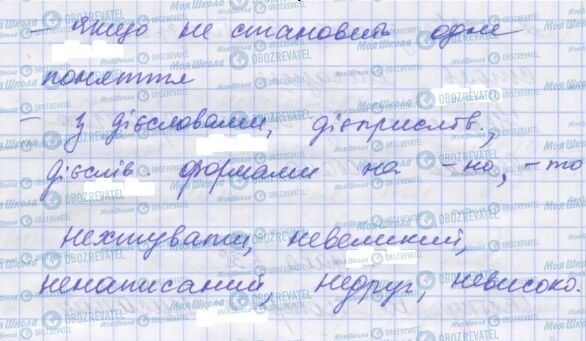 - якщо не становить одне
поняття
- з дієсловами, дієприслів.,
дієслів. формами на -но, -то
нехтувати, невеликий,
ненаписаний, недруг, невисоко.